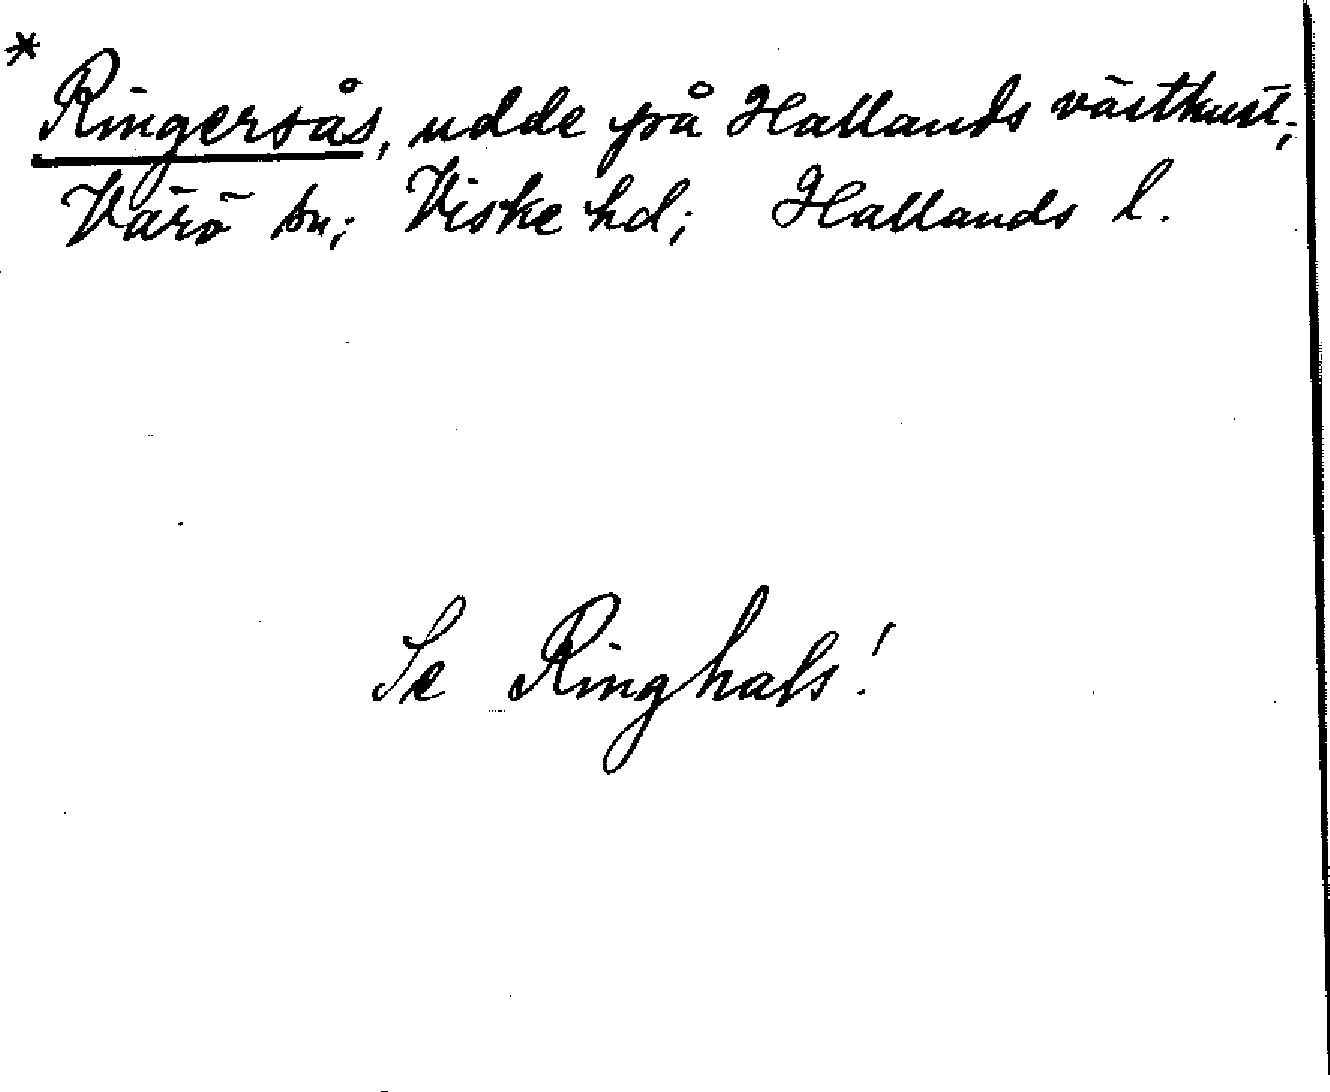 * Ringersås, udde på Hallands västkust;
Värö sn; Viske hd; Hallands l.
Se Ringhals!